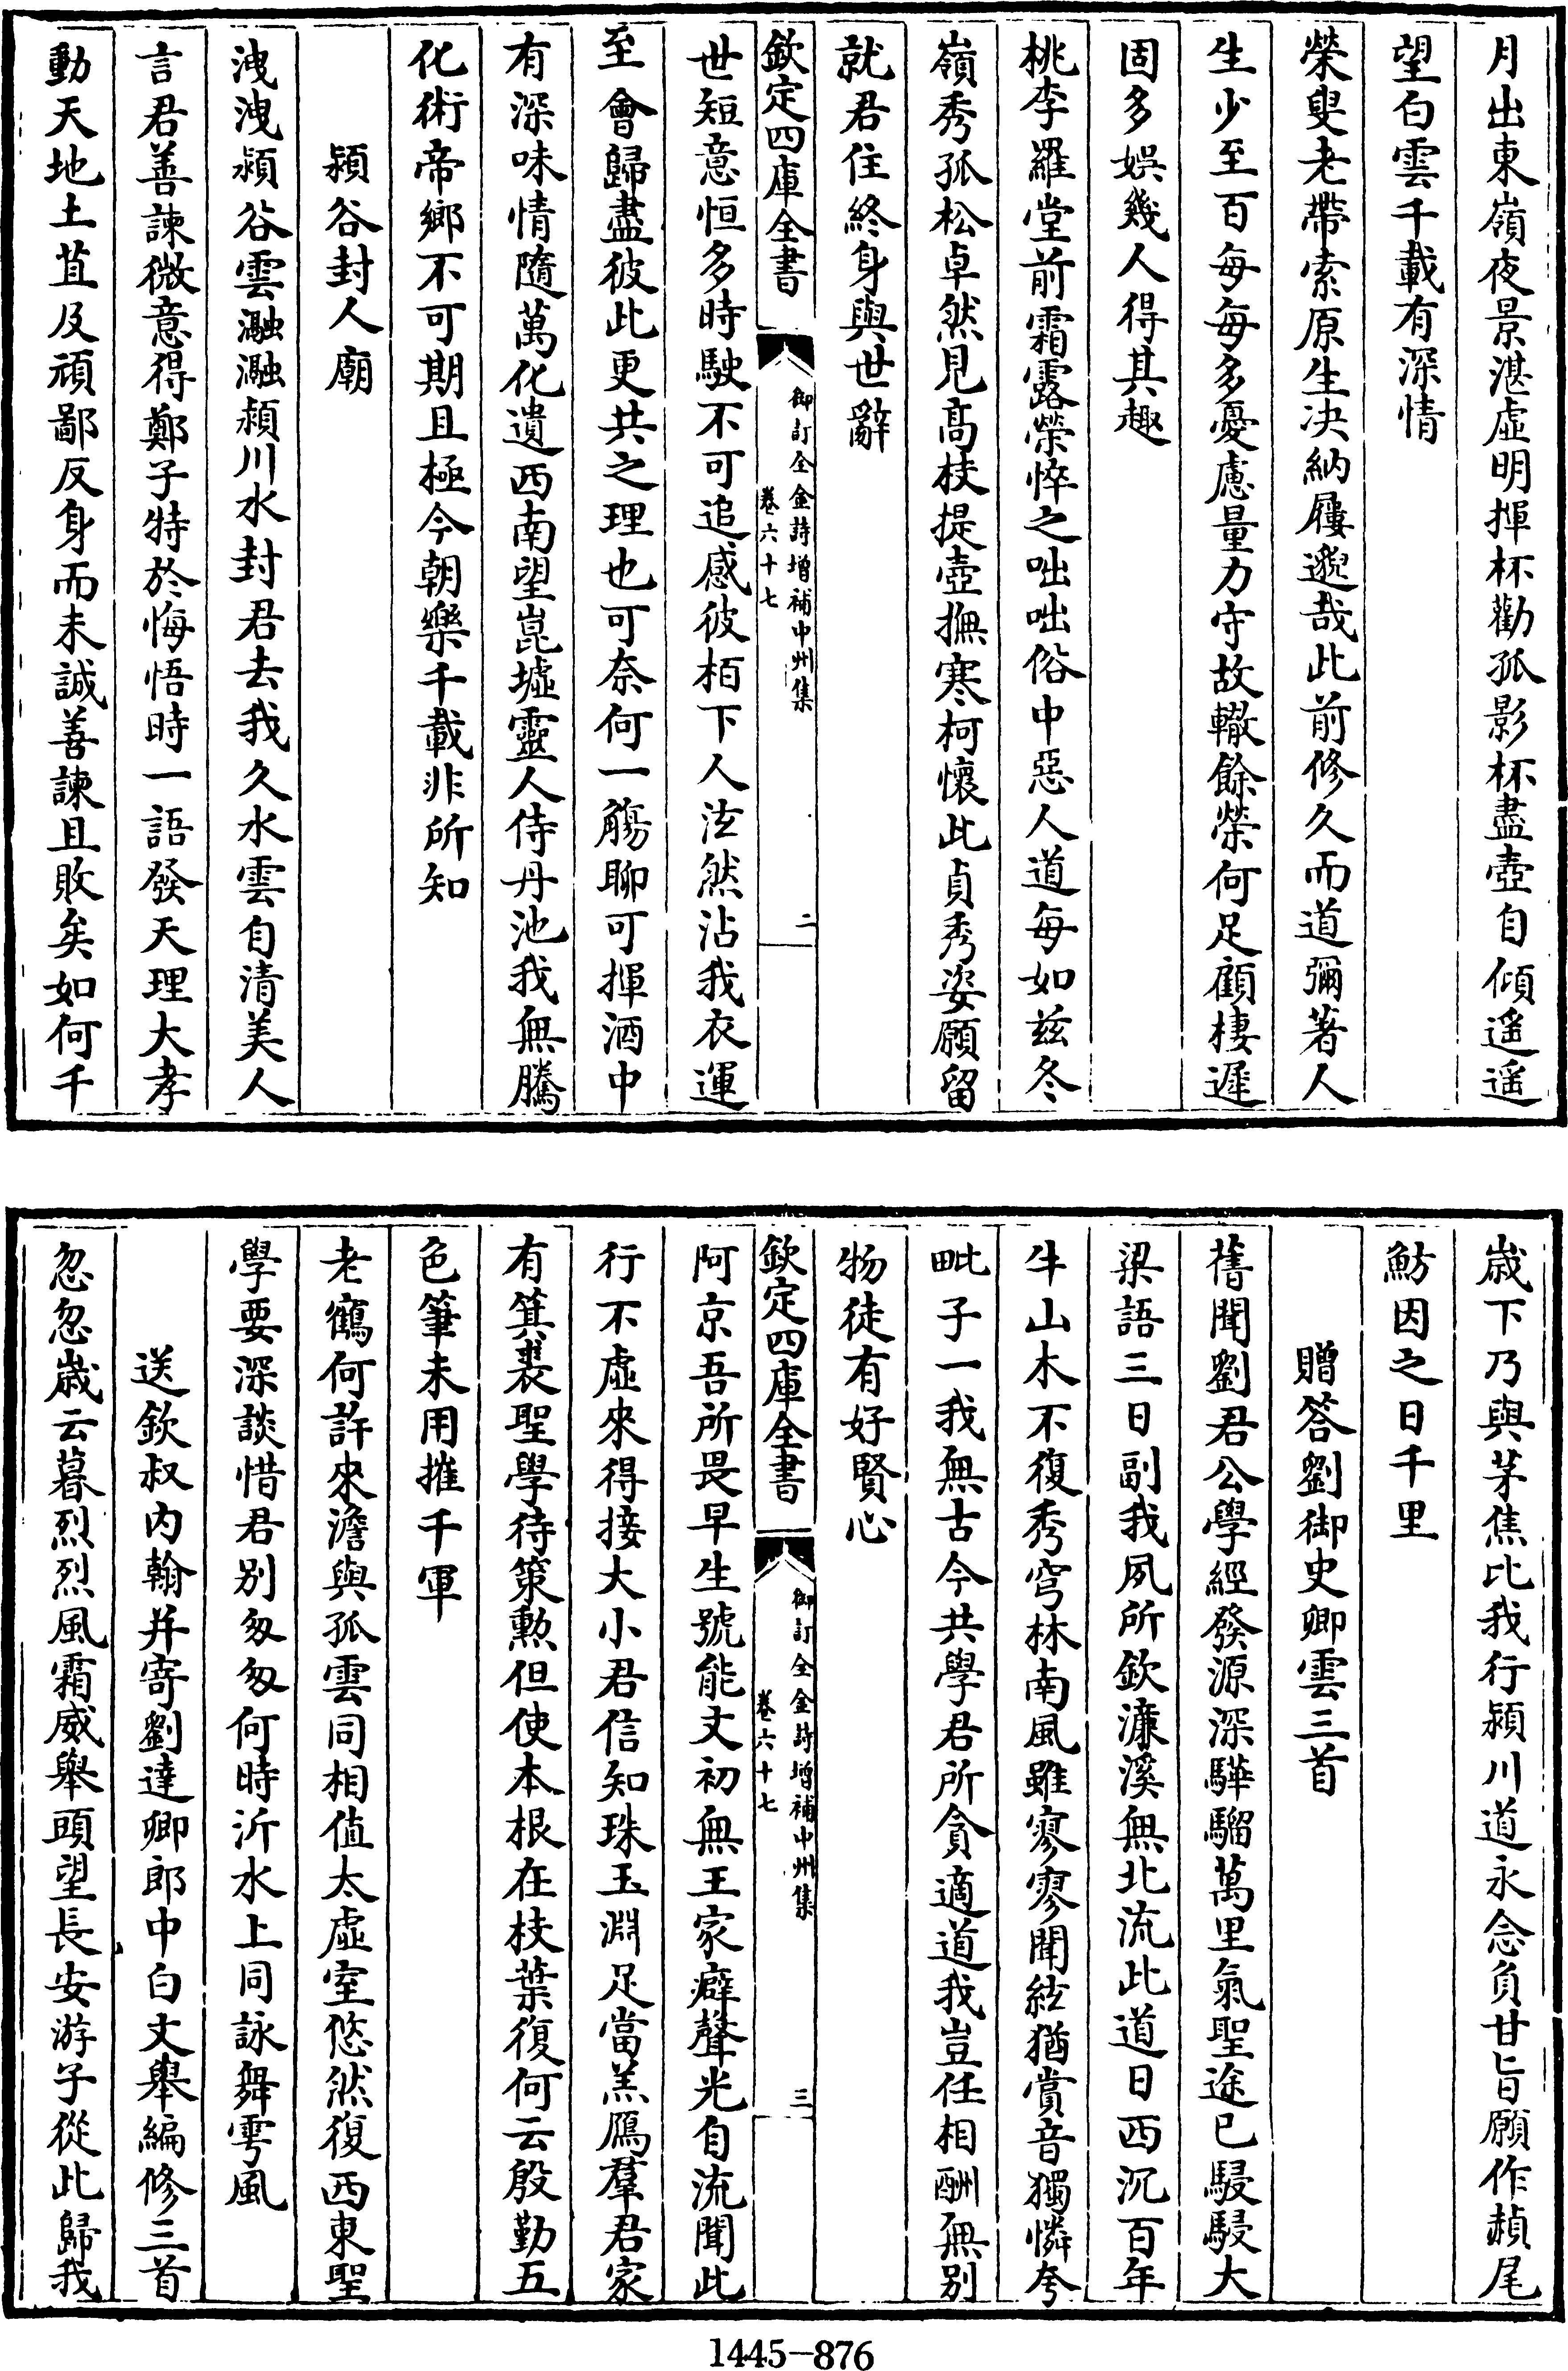 月出東嶺夜景湛虛明揮杯勸孤影杯盡壺自傾遥遥
望白雲千載有深情
榮叟老帶索原生决納屨邈哉此前修久而道彌著人
生少至百每每多憂慮量力守故轍餘榮何足顧棲遲
固多娛幾人得其趣
桃李羅堂前霜露榮悴之咄咄俗中惡人道每如兹冬
嶺秀孤松卓然見髙枝提壺撫寒柯懷此貞秀姿願留
就君住終身與世辭
欽定四庫全書
御訂全金詩增補中州集
卷六十七
二
世短意恒多時駛不可追感彼栢下人泫然沾我衣運
至會歸盡彼此更共之理也可奈何一觴聊可揮酒中
有深味情隨萬化遺西南望崑墟靈人侍丹池我無騰
化術帝鄉不可期且極今朝樂千載非所知
潁谷封人廟
洩洩潁谷雲瀜瀜潁川水封君去我久水雲自清美人
言君善諫微意得鄭子特於悔悟時一語發天理大孝
動天地土苴及頑鄙反身而未誠善諫且敗矣如何千
歳下乃與茅焦比我行潁川道永念負甘旨願作赬尾
魴因之日千里
贈答劉御史卿雲三首
舊聞劉君公學經發源深驊騮萬里氣聖途已駸駸大
梁語三日副我夙所欽濂溪無北流此道日西沉百年
牛山木不復秀穹林南風雖寥寥聞絃猶賞音獨憐夸
毗子一我無古今共學君所貪適道我豈任相酬無别
物徒有好賢心
欽定四庫全書
御訂全金詩增補中州集
卷六十七
三
阿京吾所畏早生號能文初無王家癖聲光自流聞此
行不虛來得接大小君信知珠玉淵足當羔鴈羣君家
有箕裘聖學待策勲但使本根在枝葉復何云殷勤五
色筆未用摧千軍
老鶴何許來澹與孤雲同相值太虛室悠然復西東聖
學要深談惜君别匆匆何時沂水上同詠舞雩風
送欽叔内翰并寄劉達卿郎中白文舉編修三首
忽忽歳云暮烈烈風霜威舉頭望長安游子從此歸我
1445-876